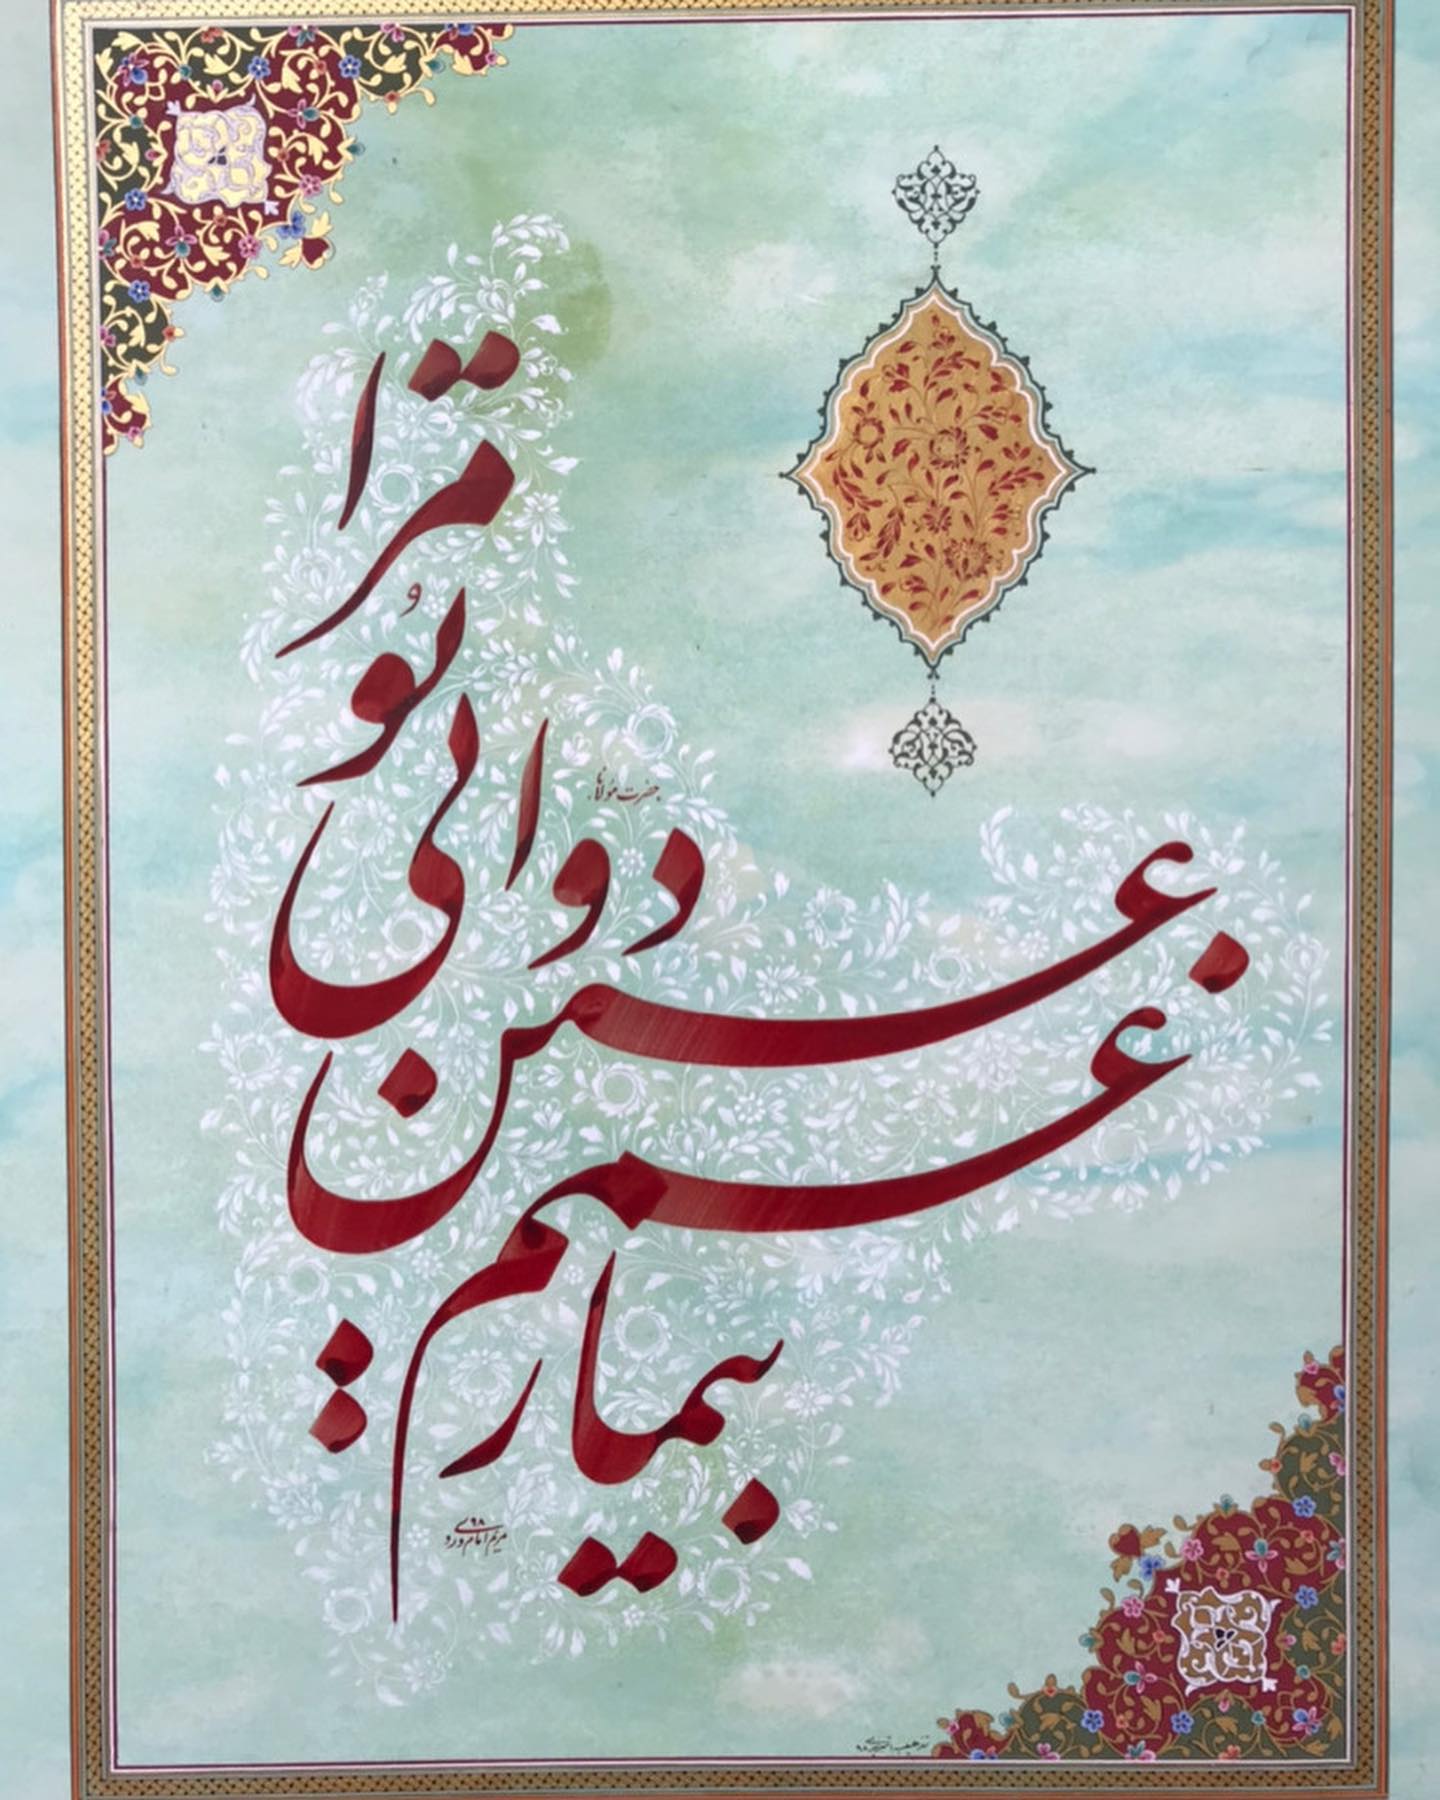 بیمار غمم عین دوایی تو مرا
حضرت مولانا
مریم امام وردی ۹۸
تذهیب